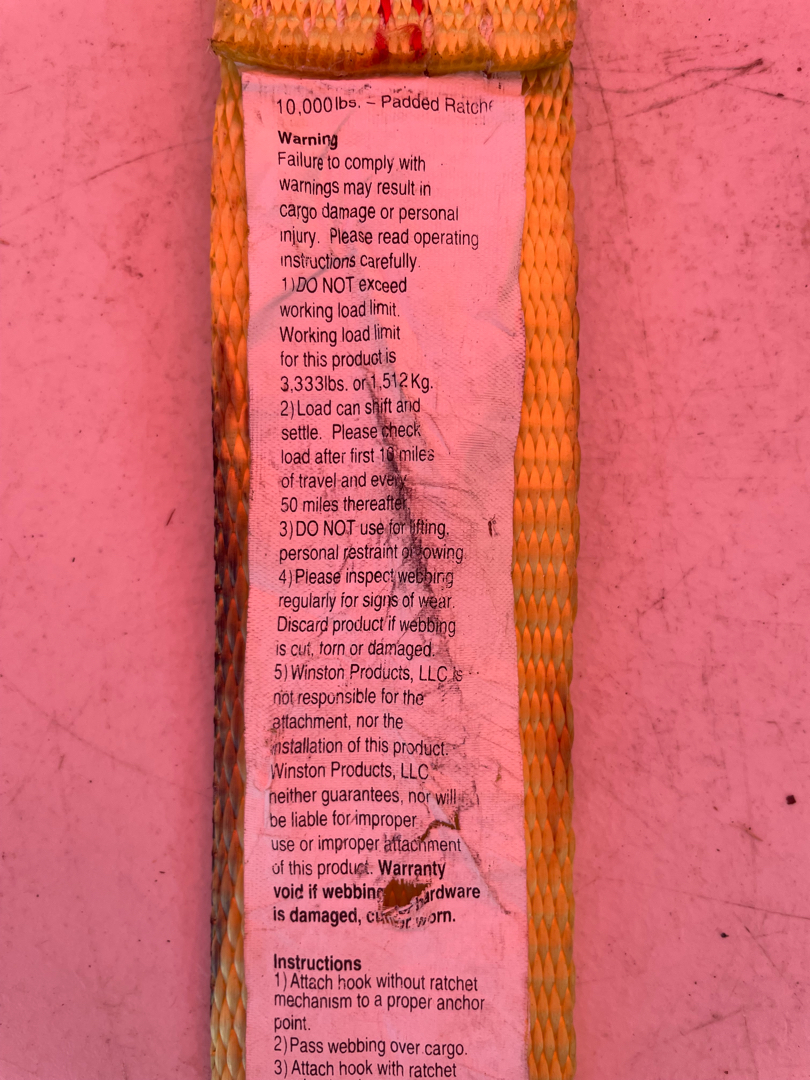 10,000lbs. – Padded Ratche
Warning
Failure to comply with
warnings may result in
cargo damage or personal
injury. Please read operating
instructions carefully.
1)DO NOT exceed
working load limit.
Working load limit
for this product is
3,333lbs. or 1,512Kg.
2)Load can shift and
settle. Please check
load after first 10 miles
of travel and every
50 miles thereafter
3)DO NOT use for lifting,
personal restraint or towing
4)Please inspect webbing
regularly for signs of wear.
Discard product if webbing
is cut, torn or damaged.
5)Winston Products, LLC is
not responsible for the
attachment, nor the
installation of this product.
Winston Products, LLC
neither guarantees, nor will
be liable for improper
use or improper attachment
of this product. Warranty
void if webbing
is damaged, worn.
Instructions
1)Attach hook without ratchet
mechanism to a proper anchor
point.
2)Pass webbing over cargo.
3)Attach hook with ratchet